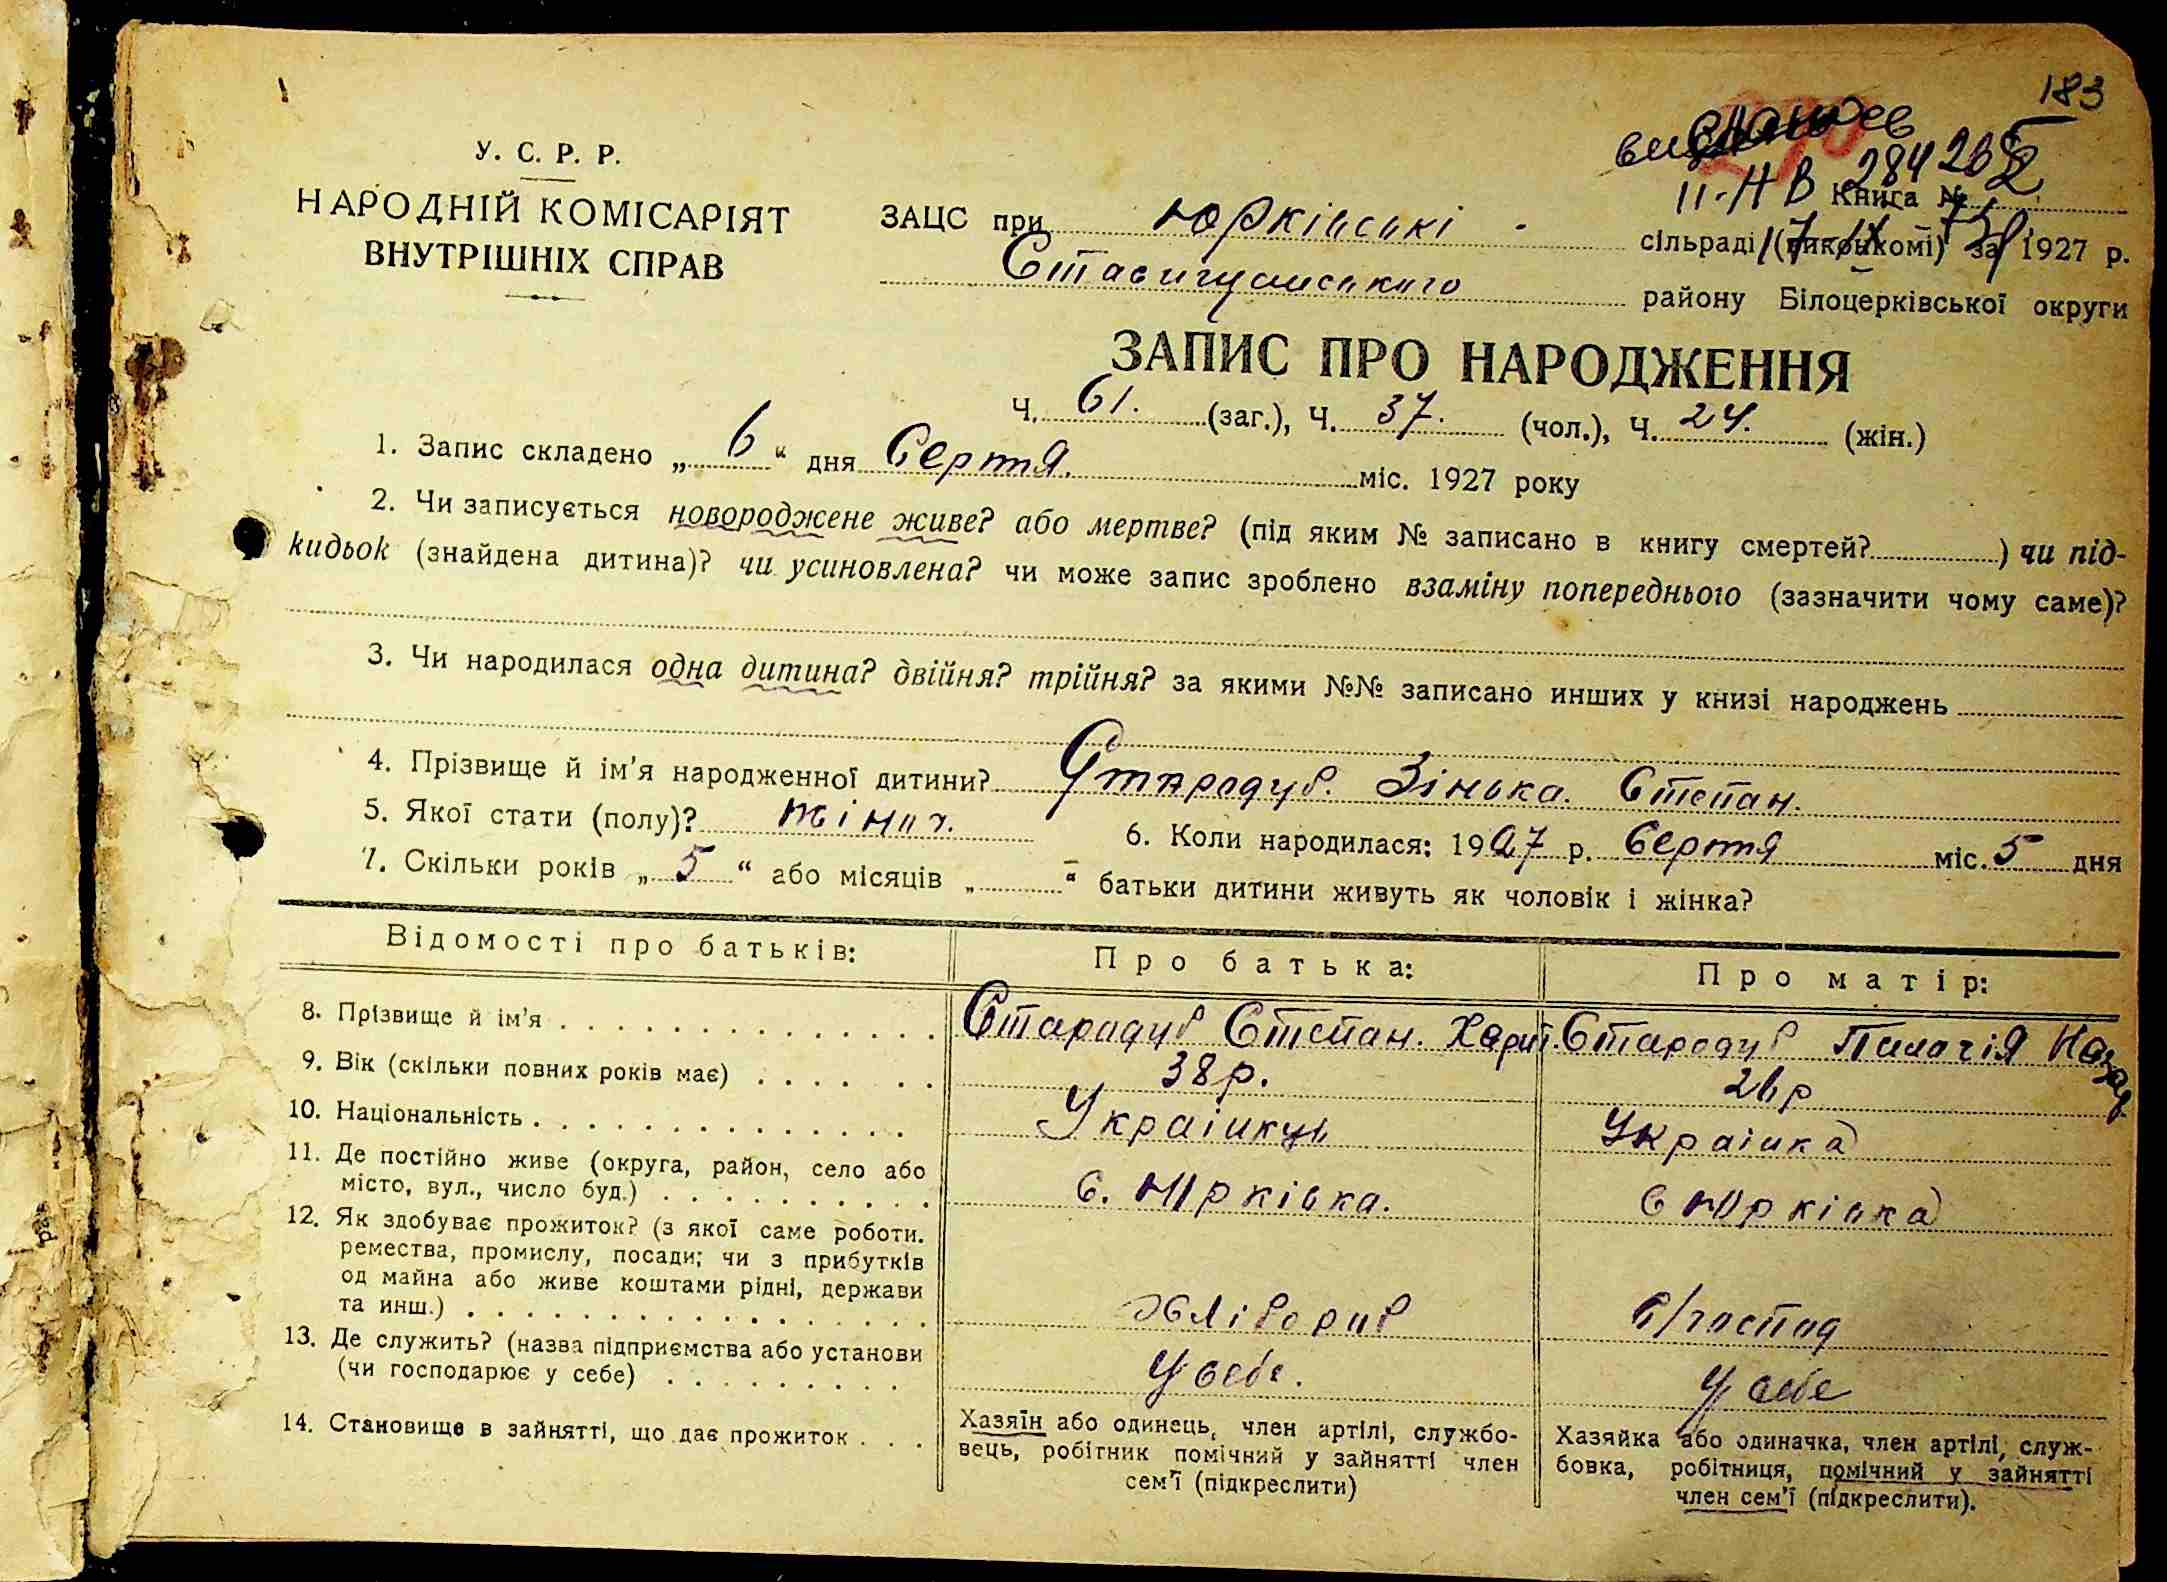 183
У. С. Р. Р.
НАРОДНІЙ КОМІСАРІЯТ
ВНУТРІШНІХ СПРАВ
II-НВ 284265
Книга №
ЗАЦС при Юрківські сільраді (виконкомі) за 1927 р.
Ставищанського району Білоцерківської округи
ЗАПИС ПРО НАРОДЖЕННЯ
Ч. 61. (заг.), Ч. 37. (чол.), Ч. 24. (жін.)
1. Запис складено „ 6 “ дня Серпня. міс. 1927 року
2. Чи записується новороджене живе? або мертве? (під яким № записано в книгу смертей? ) чи під-
кидьок (знайдена дитина)? чи усиновлена? чи може запис зроблено взаміну попереднього (зазначити чому саме)?
3. Чи народилася одна дитина? двійня? трійня? за якими №№ записано инших у книзі народжень
4. Прізвище й ім'я народженної дитини? Стародуб. Зінька. Степан.
5. Якої стати (полу)? жіноч. 6. Коли народилася: 1927 р. Серпня міс. 5 дня
7. Скільки років „ 5 “ або місяців „ – “ батьки дитини живуть як чоловік і жінка?
Відомості про батьків: Про батька: Про матір:
8. Прізвище й ім'я Стародуб Степан. Харит. Стародуб Палагія Назар
9. Вік (скільки повних років має) 38 р. 26 р
10. Національність Украінець Украінка
11. Де постійно живе (округа, район, село або
місто, вул., число буд.) с. Юрківка. с Юрківка
12. Як здобуває прожиток? (з якої саме роботи.
ремества, промислу, посади; чи з прибутків
од майна або живе коштами рідні, держави
та инш.) Хлібороб с/господ
13. Де служить? (назва підприємства або установи
(чи господарює у себе) У себе. У себе
14. Становище в зайнятті, що дає прожиток
Хазяїн або одинець, член артілі, службо-
вець, робітник помічний у зайнятті член
сем'ї (підкреслити)
Хазяйка або одиначка, член артілі, служ-
бовка, робітниця, помічний у зайнятті
член сем'ї (підкреслити).